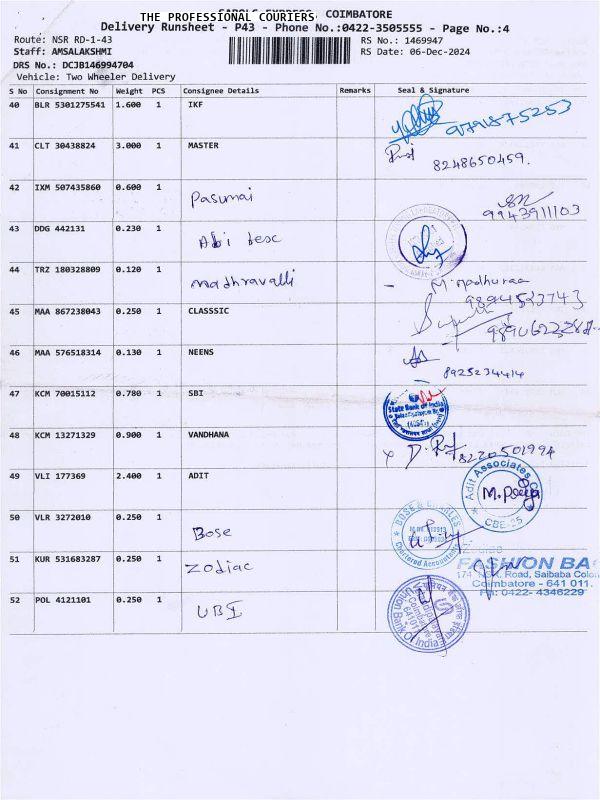 THE PROFESSIONAL COURIERS
COIMBATORE
Delivery Runsheet - P43 - Phone No.:0422-3505555 - Page No.:4
Route: NSR RD-1-43
RS No.: 1469947
Staff: AMSALAKSHMI
RS Date: 06-Dec-2024
DRS No.: DCJB146994704
Vehicle: Two Wheeler Delivery
S No Consignment No Weight PCS Consignee Details Remarks Seal & Signature
40 BLR 5301275541 1.600 1 IKF
9791875253
41 CLT 30438824 3.000 1 MASTER
8248650459.
42 IXM 507435860 0.600 1 Pasumai
9943911103
43 DDG 442131 0.230 1 Abi tesc
44 TRZ 180328809 0.120 1 madhravalli
M. Madhuraa
9894523743
45 MAA 867238043 0.250 1 CLASSSIC
46 MAA 576518314 0.130 1 NEENS
8925234414
47 KCM 70015112 0.780 1 SBI
State Bank of India
48 KCM 13271329 0.900 1 VANDHANA
8220501994
49 VLI 177369 2.400 1 ADIT
Adit Associates
M. Pooja
CBE-25
50 VLR 3272010 0.250 1 Bose
BOSE & CHARLES
Chartered Accountants
51 KUR 531683287 0.250 1 Zodiac
Zodiac
FASHION BA
174 NSR, Road, Saibaba Colo
Coimbatore - 641 011.
Ph: 0422- 4346229
52 POL 4121101 0.250 1 UBI
Union Bank of India